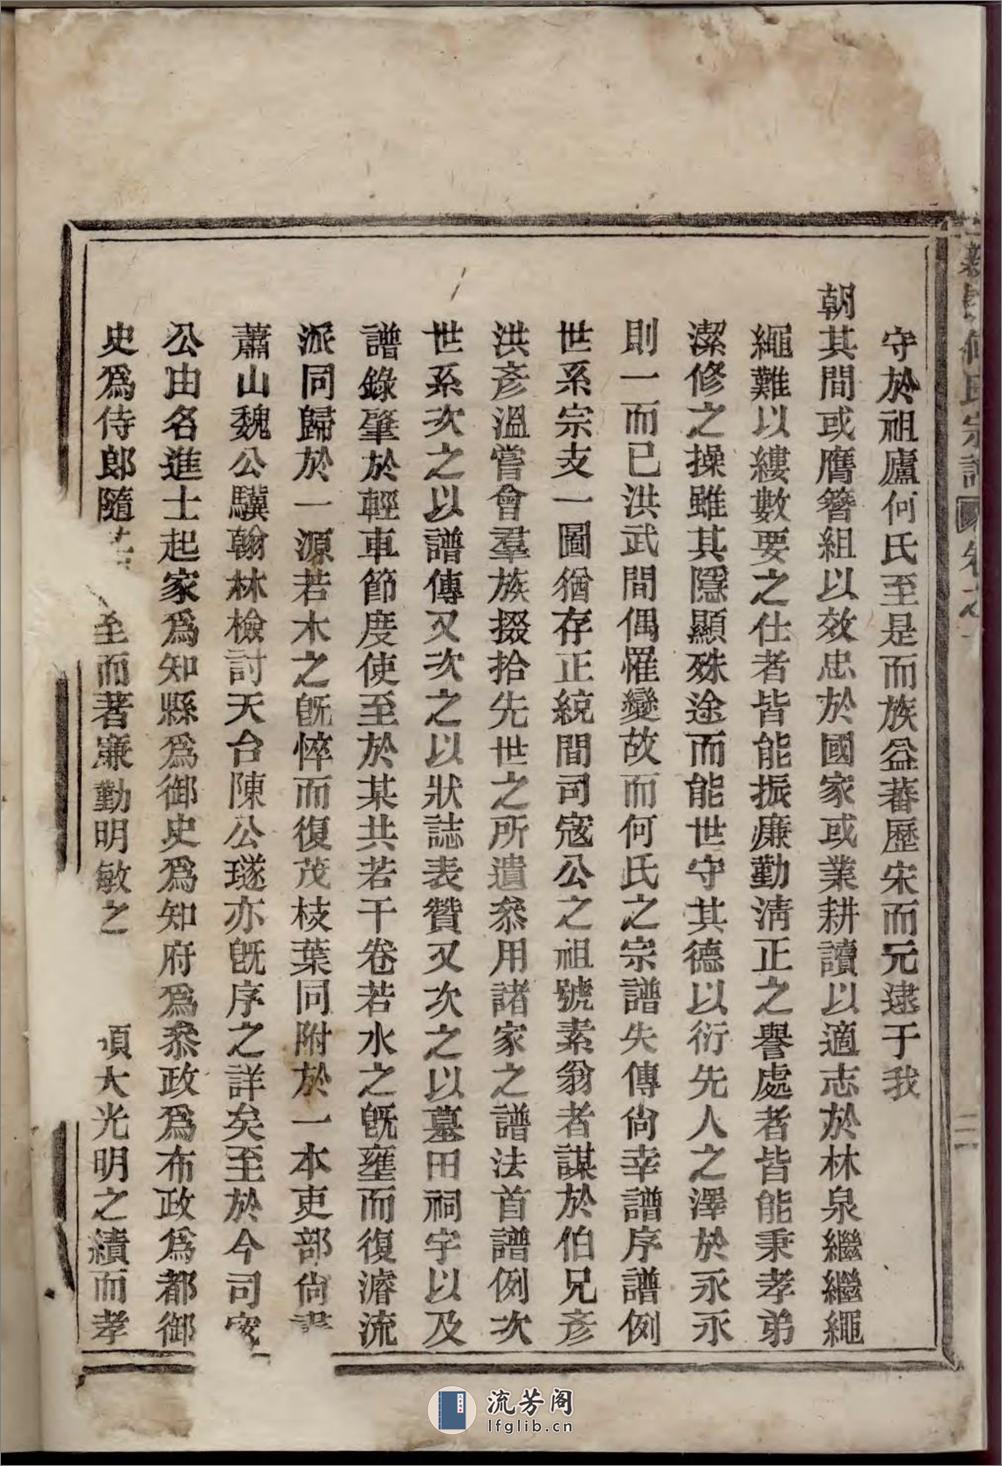 氏宗譜 卷之
二
守於祖廬何氏至是而族益蕃歷宋而元逮于我
朝其間或膺簪組以效忠於國家或業耕讀以適志於林泉繼繼繩
繩難以縷數要之仕者皆能振廉勤淸正之譽處者皆能秉孝弟
潔修之操雖其隱顯殊途而能世守其德以衍先人之澤於永永
則一而已洪武間偶罹變故而何氏之宗譜失傳尙幸譜序譜例
世系宗支一圖猶存正統間司寇公之祖號素翁者謀於伯兄彥
洪彥溫嘗會羣族掇拾先世之所遺叅用諸家之譜法首譜例次
世系次之以譜傳又次之以狀誌表贊又次之以墓田祠宇以及
譜錄肇於輕車節度使至於某共若干卷若水之旣壅而復濬流
派同歸於一源若木之旣悴而復茂枝葉同附於一本吏部尙書
蕭山魏公驥翰林檢討天台陳公璲亦旣序之詳矣至於今司寇
公由名進士起家爲知縣爲御史爲知府爲叅政爲布政爲都御
史爲侍郎隨 至而著廉勤明敏之 頑大光明之績而孝
流芳阁
lfglib.cn